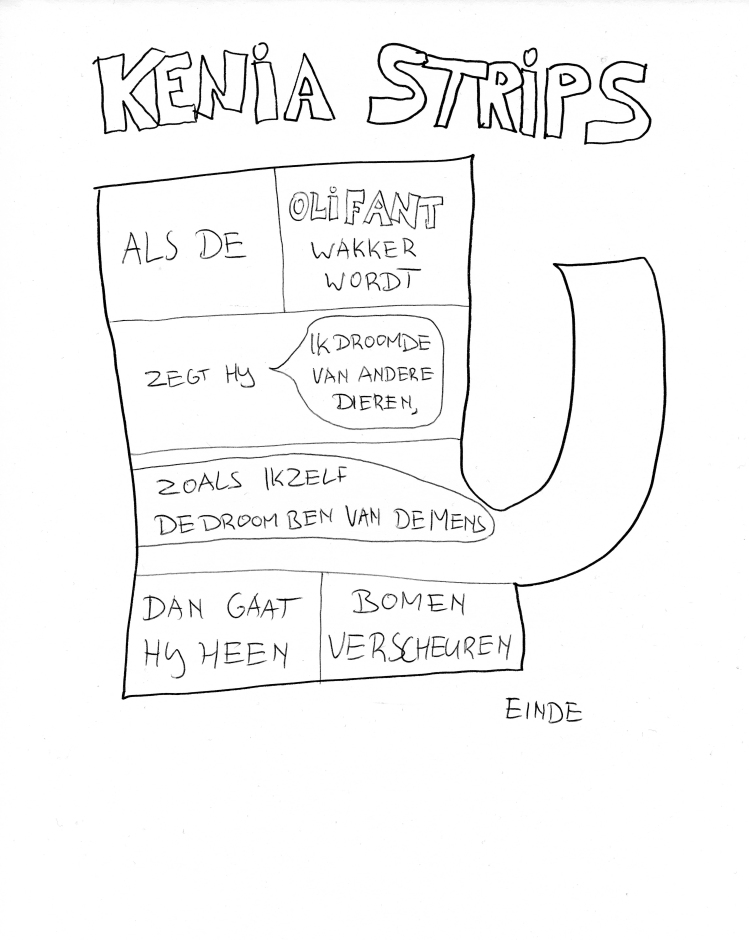 KENiA STRiPS
ALS DE
OLiFANT
WAKKER
WORDT
ZEGT HY
IK DROOMDE
VAN ANDERE
DIEREN,
ZOALS IKZELF
DE DROOM BEN VAN DE MENS
DAN GAAT
HY HEEN
BOMEN
VERSCHEUREN
EINDE